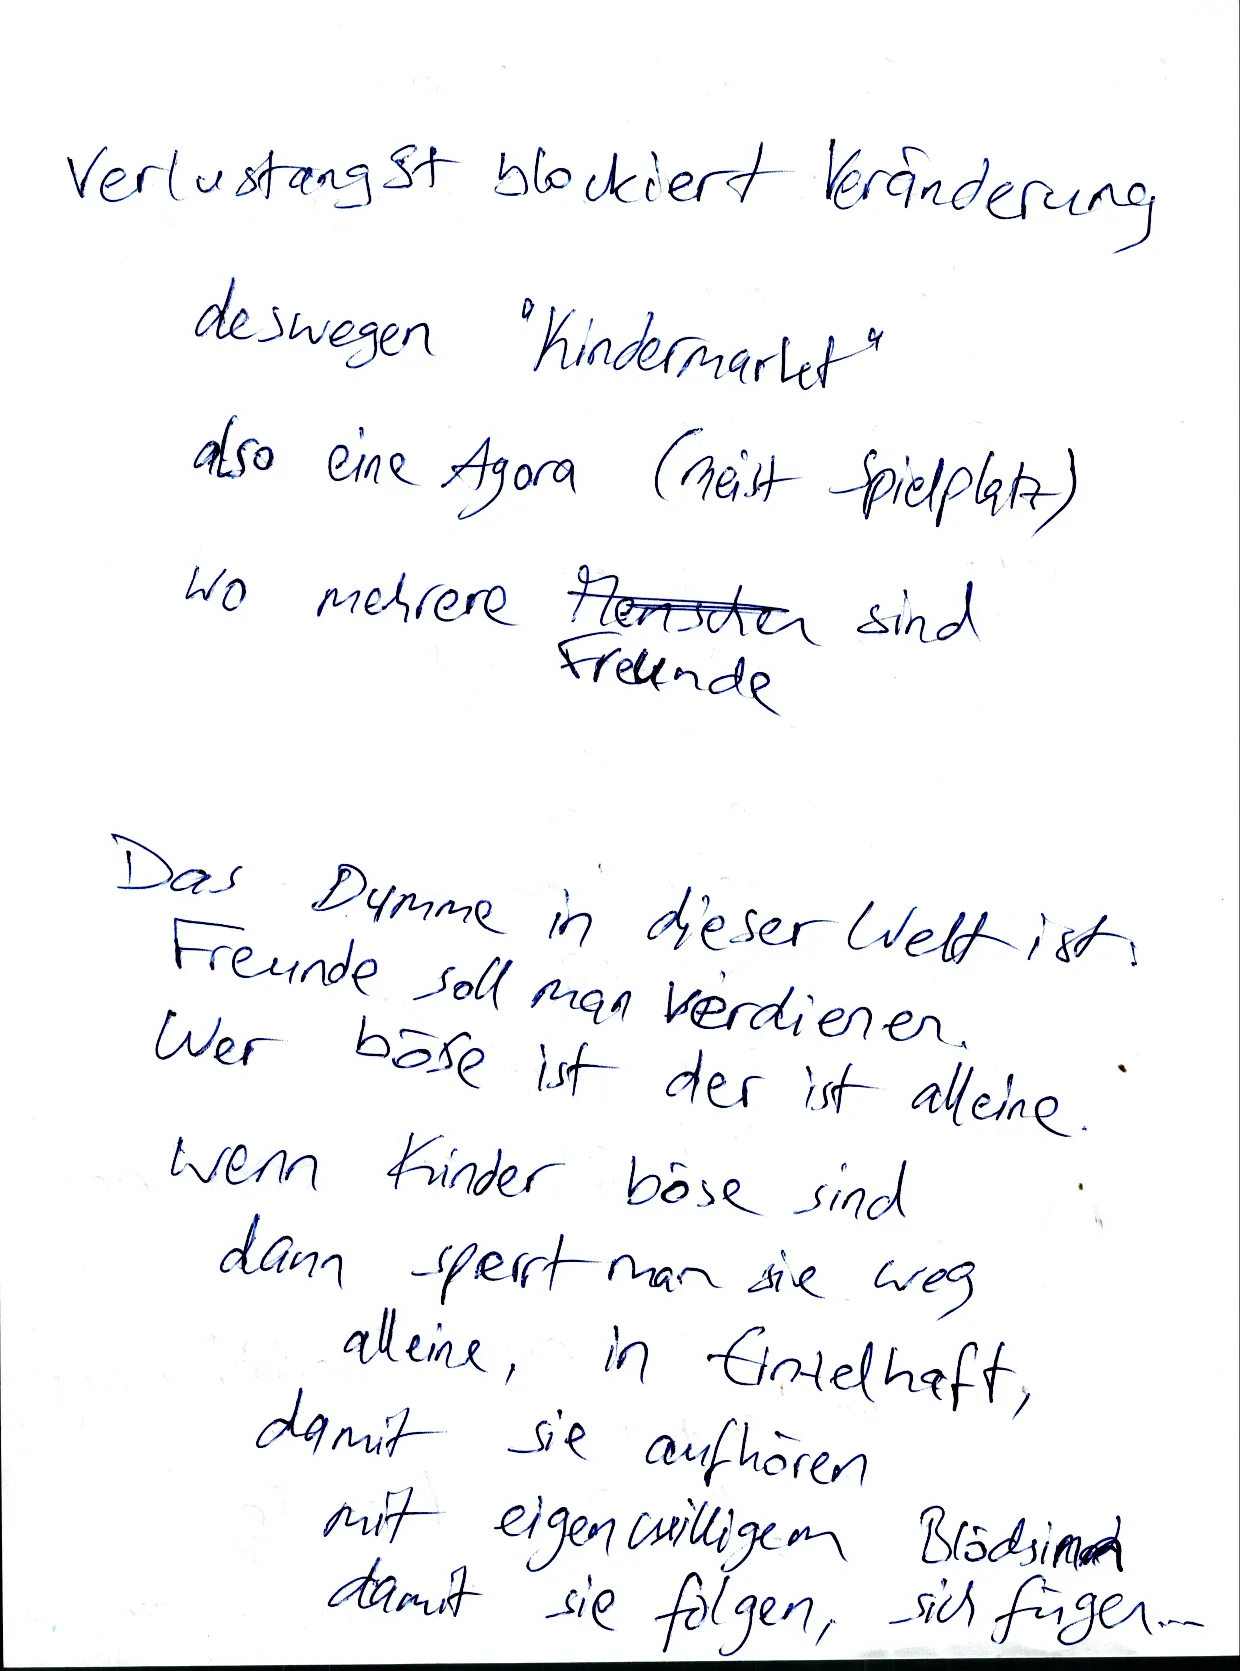 Verlustangst blockiert Veränderung
deswegen "Kindermarkt"
also eine Agora (meist Spielplatz)
wo mehrere Menschen sind
Freunde
Das Dumme in dieser Welt ist:
Freunde soll man verdienen.
Wer böse ist der ist alleine.
wenn Kinder böse sind
dann sperrt man sie weg
alleine, in Einzelhaft,
damit sie aufhören
mit eigenwilligem Blödsinn
damit sie folgen, sich fügen...